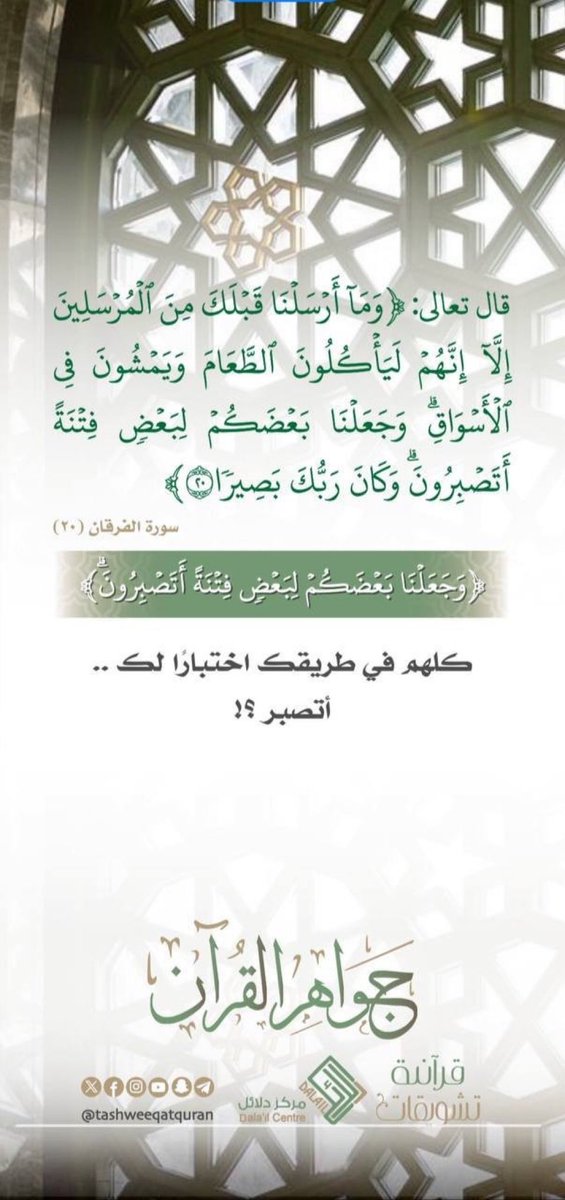 قال تعالى: ﴿وَمَآ أَرۡسَلۡنَا قَبۡلَكَ مِنَ ٱلۡمُرۡسَلِينَ
إِلَّآ إِنَّهُمۡ لَيَأۡكُلُونَ ٱلطَّعَامَ وَيَمۡشُونَ فِي
ٱلۡأَسۡوَاقِۗ وَجَعَلۡنَا بَعۡضَكُمۡ لِبَعۡضٖ فِتۡنَةً
أَتَصۡبِرُونَۗ وَكَانَ رَبُّكَ بَصِيرٗا ٢٠﴾
سورة الفرقان (٢٠)
﴿وَجَعَلۡنَا بَعۡضَكُمۡ لِبَعۡضٖ فِتۡنَةً أَتَصۡبِرُونَۗ﴾
كلهم في طريقك اختبارًا لك ..
أتصبر ؟!
جَوَاهِرُ القُرآن
قرآنية
تشويقات
DALA'IL
مركز دلائل
Dala'il Centre
@tashweeqatquran